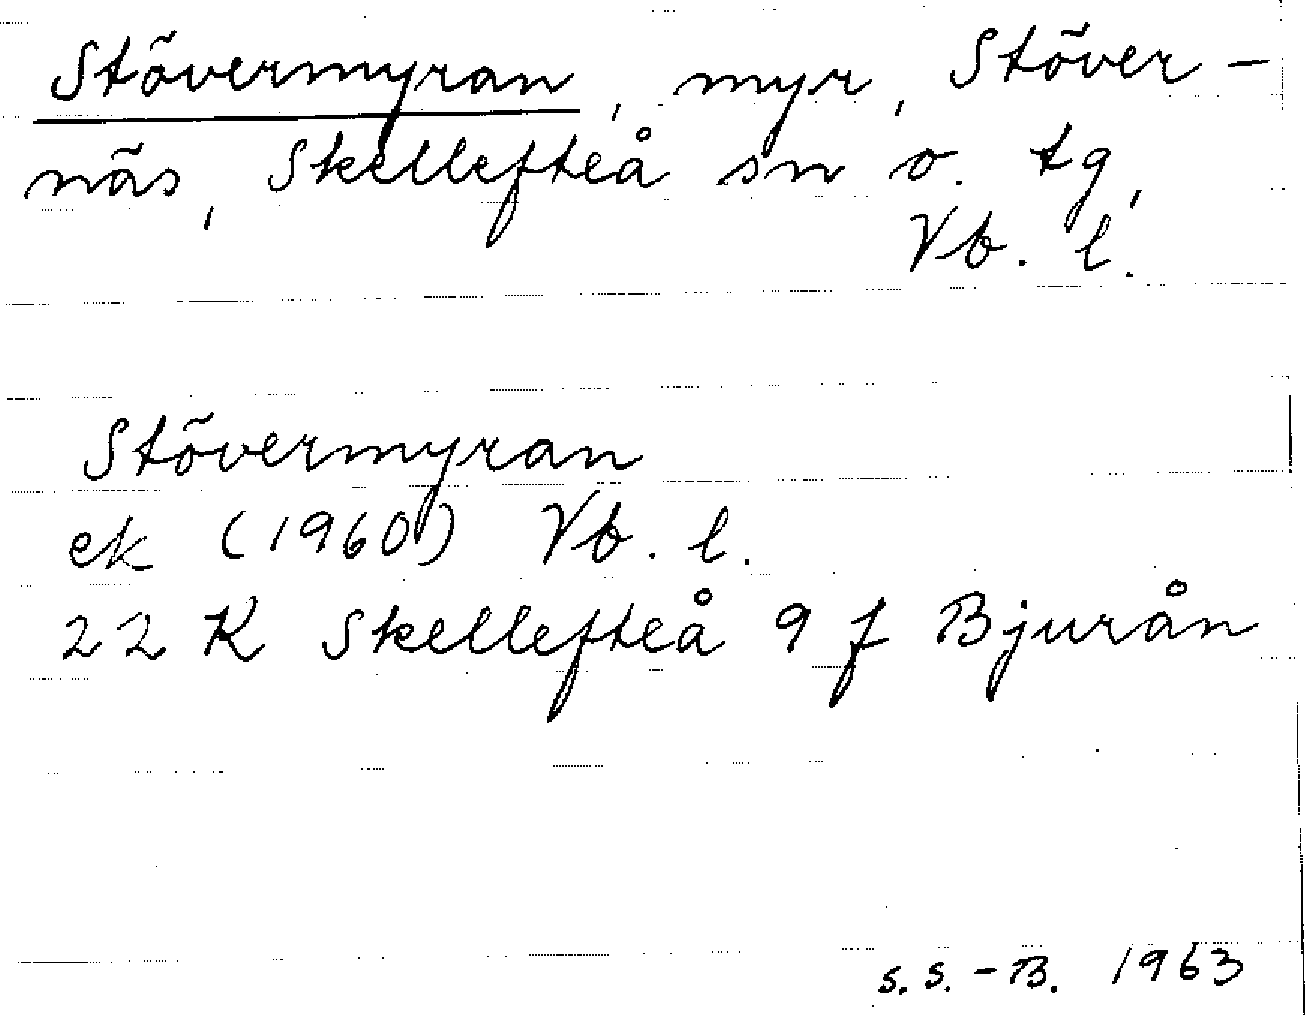 Stövermyran, myr, Stöver-
näs, Skellefteå sn o. tg,
Vb. l.
Stövermyran
ek (1960) Vb. l.
22 K Skellefteå 9 f Bjurån
S. S. - B. 1963